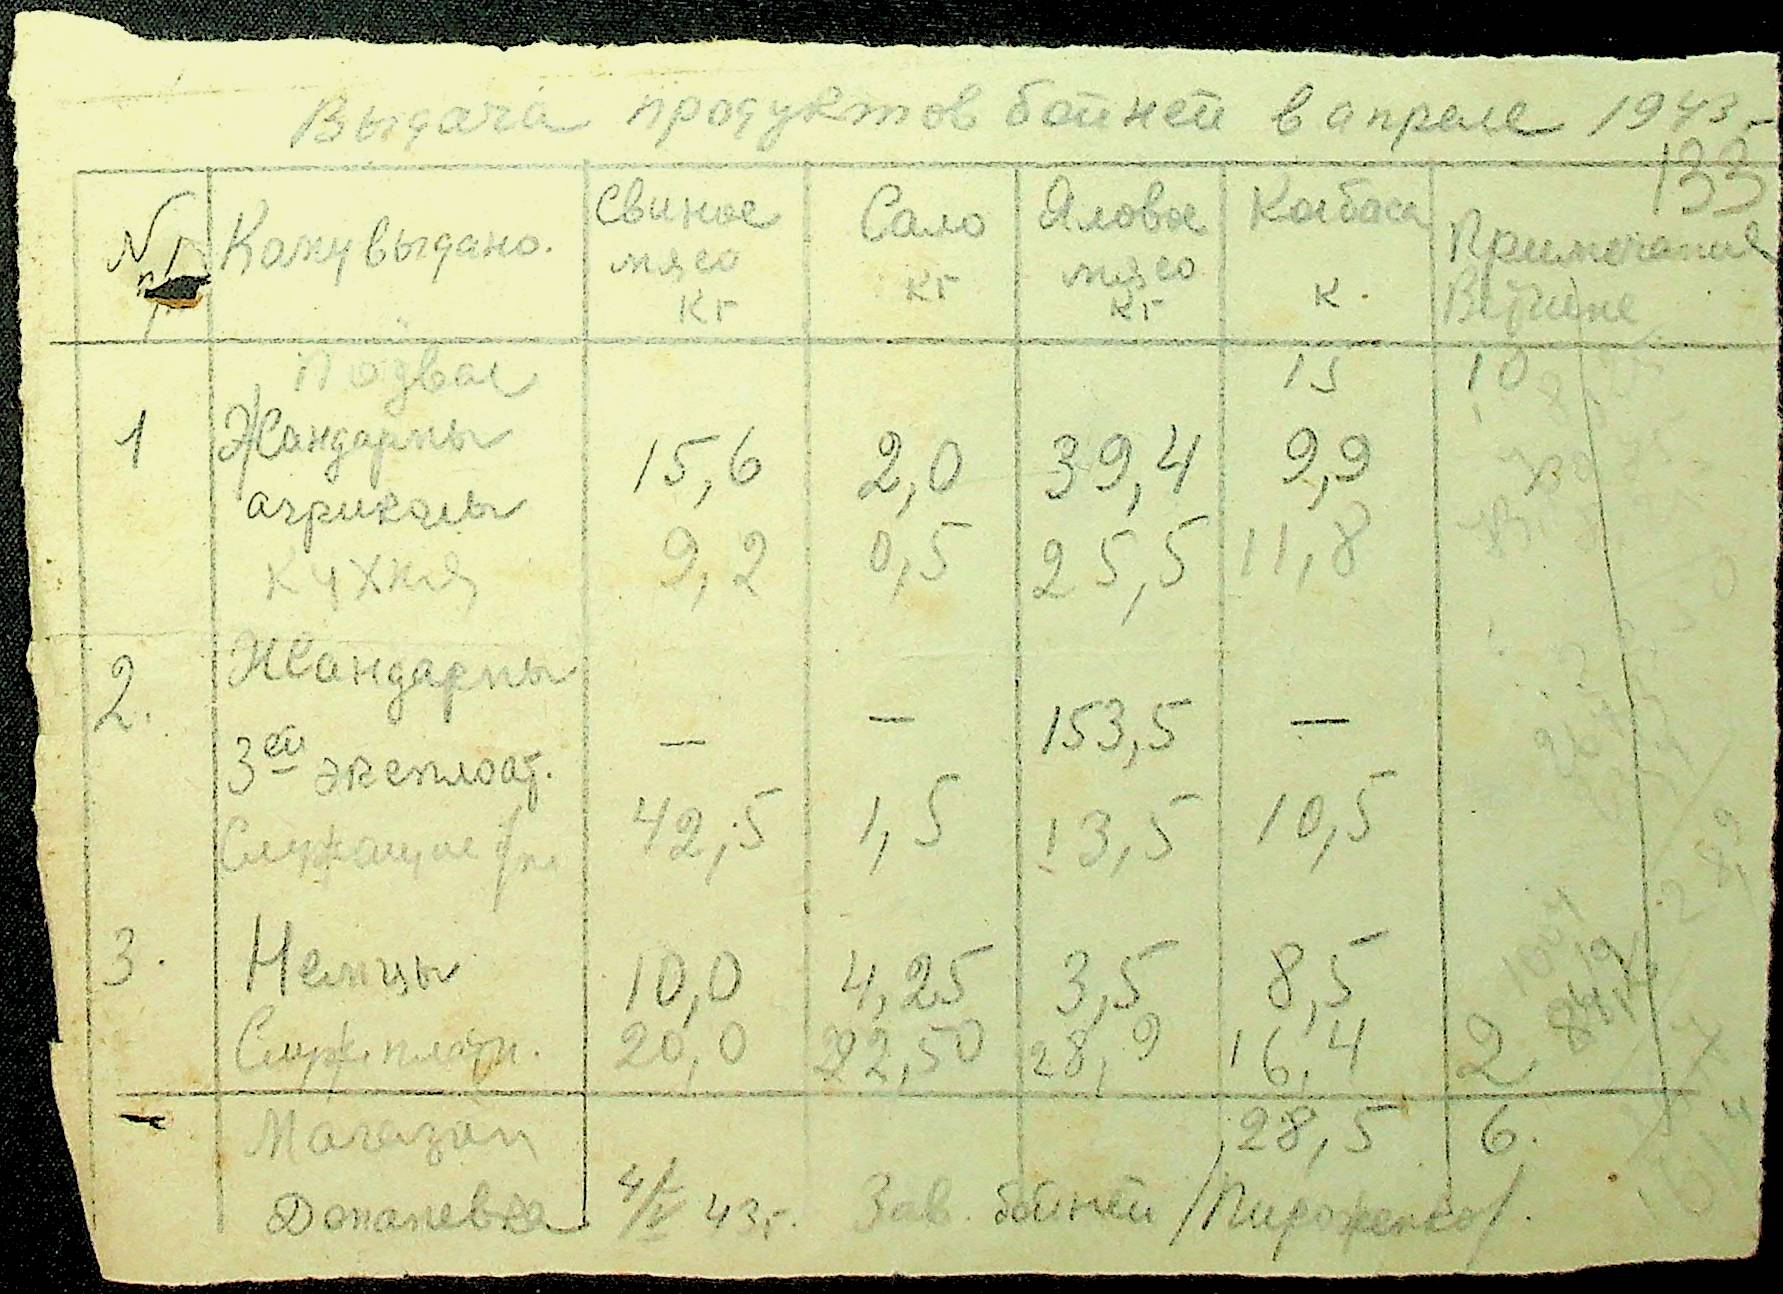 Выдача продуктов бойней в апреле 1943
133
№ Кому выдано. Свиное мясо кг Сало кг Яловое мясо кг Колбаса к. Примечание
Подвал 15 10
1 Жандармы 15,6 2,0 39,4 9,9
агриколы
Кухня 9,2 0,5 25,5 11,8
2. Жандармы
3ей эксплоат. — — 153,5 —
Служащие 42,5 1,5 13,5 10,5
3. Немцы 10,0 4,25 3,5 8,5
Служ. 20,0 22,50 28,9 16,4 2
Магазин 28,5 6.
Доманевка 4/V 43г. Зав. бойней /Пироженко/.